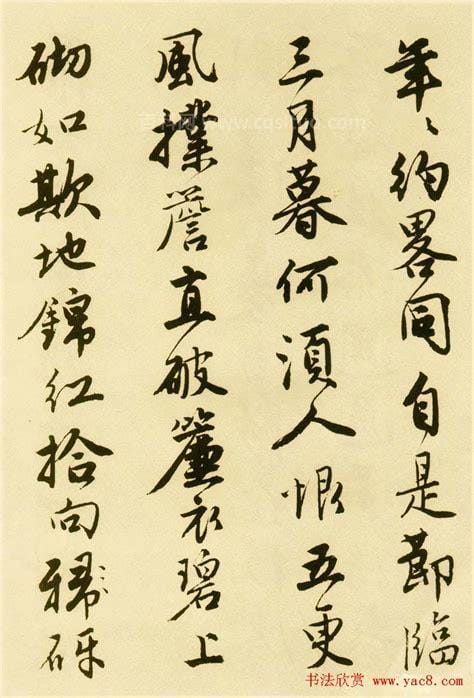 年〻約畧同自是節臨
三月暮何須人恨五更
風撲簷直破簾衣碧上
砌如欺地錦紅拾向砑
书法欣赏 www.yac8.com